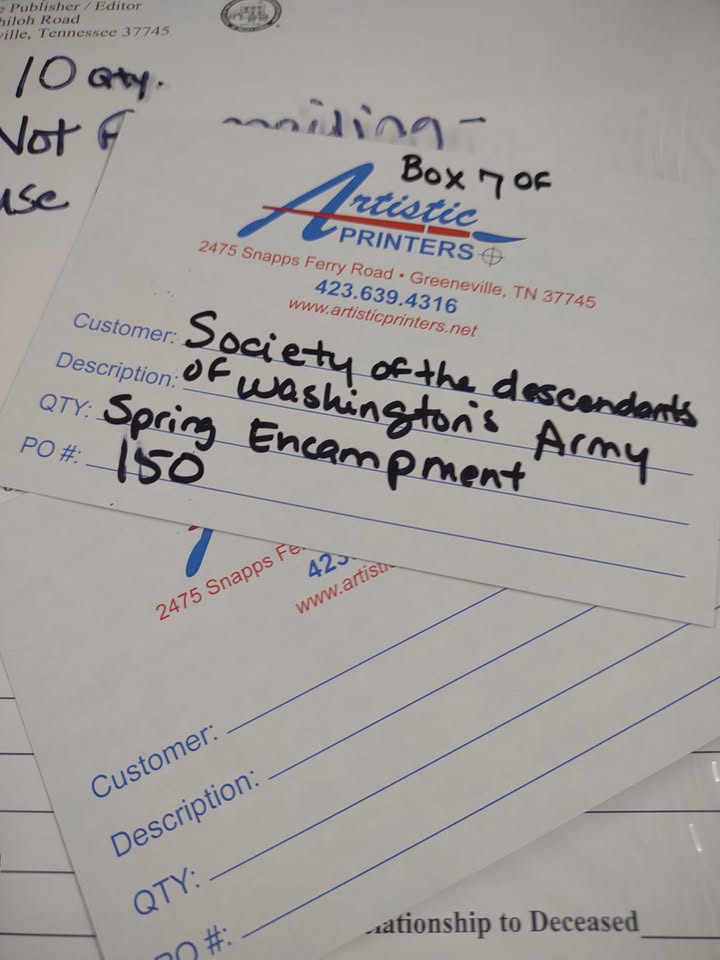 Publisher / Editor
hiloh Road
ville, Tennessee 37745
10 Qty.
Not
mailing -
use
Box 7 OF
Artistic
PRINTERS
2475 Snapps Ferry Road • Greeneville, TN 37745
423.639.4316
www.artisticprinters.net
Customer: Society of the descendants
Description: of Washington's Army
QTY: Spring Encampment
PO #: 150
2475 Snapps Fe
423.
www.artisti
Customer:
Description:
QTY:
PO #:
lationship to Deceased